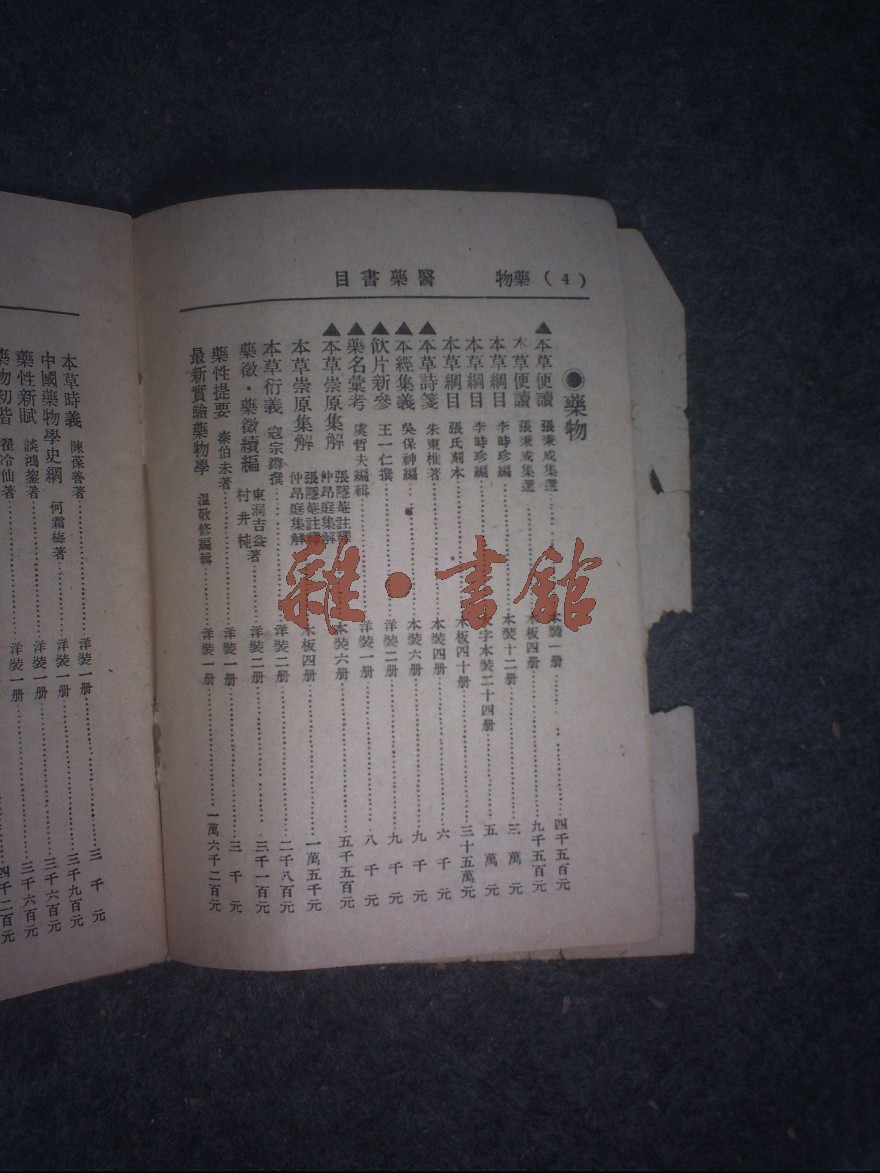 目書藥醫 物藥（4）
●藥物
▲本草便讀 張秉成集選 本裝一册 四千五百元
本草便讀 張秉成集選 木板四册 九千五百元
本草綱目 李時珍編 本裝十二册 三萬元
本草綱目 李時珍編 字本裝二十四册 五萬元
本草綱目 張氏刻本 木板四十册 三十五萬元
▲本草詩箋 朱東樵著 本裝四册 六千元
▲本經集義 吳保神編 本裝六册 九千元
▲飲片新參 王一仁撰 洋裝二册 九千元
▲藥名彙考 虞哲夫編輯 洋裝一册 八千元
▲本草崇原集解 張隱菴註釋 仲昂庭集解 本裝六册 五千五百元
本草崇原集解 張隱菴註釋 仲昂庭集解 木板四册 一萬五千元
本草衍義 寇宗奭撰 洋裝二册 二千八百元
藥徵·藥徵續編 東洞吉益 村井杶 著 洋裝二册 三千一百元
藥性提要 秦伯未著 洋裝一册 三千元
最新實驗藥物學 溫敬修編輯 洋裝一册 一萬六千二百元
本草時義 陳葆善著 洋裝一册 三千元
中國藥物學史綱 何霜梅著 洋裝一册 三千九百元
藥性新賦 談鴻鋆著 洋裝一册 三千六百元
藥物初階 翟冷仙著 洋裝一册 三千六百元
四千二百元
雜·書館